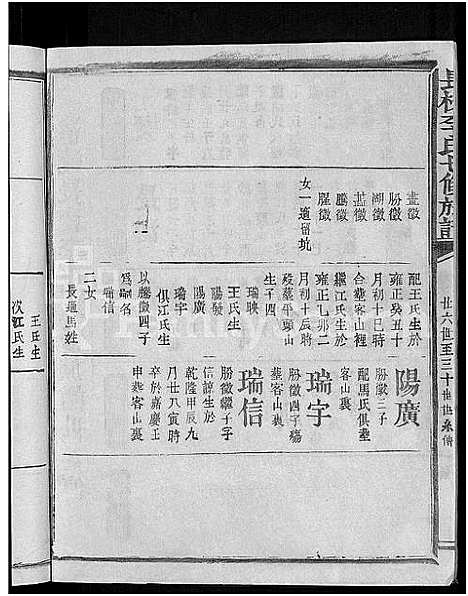 李氏七修族譜
廿六世至三十世世系傳
畫徵
勝徵
湖徵
藍徵
騰徵
耀徵
女一適留坑
配王氏生於
雍正癸五十
月初十巳時
合葬客山裏
繼江氏生於
雍正乙卯二
月初十辰時
歿葬平頭山
生子四
瑞映
王氏生
陽發
陽廣
瑞宇
俱江氏生
以騰徵四子
為嗣名
瑞信
二女
長適馬姓
陽廣
勝徵三子
配馬氏俱葬
客山裏
瑞宇
勝徵四子殤
葬客山裏
瑞信
勝徵繼子字
信諒生於
乾隆甲辰九
月廿八寅時
卒於嘉慶壬
申葬客山裏
王氏生
次江氏生